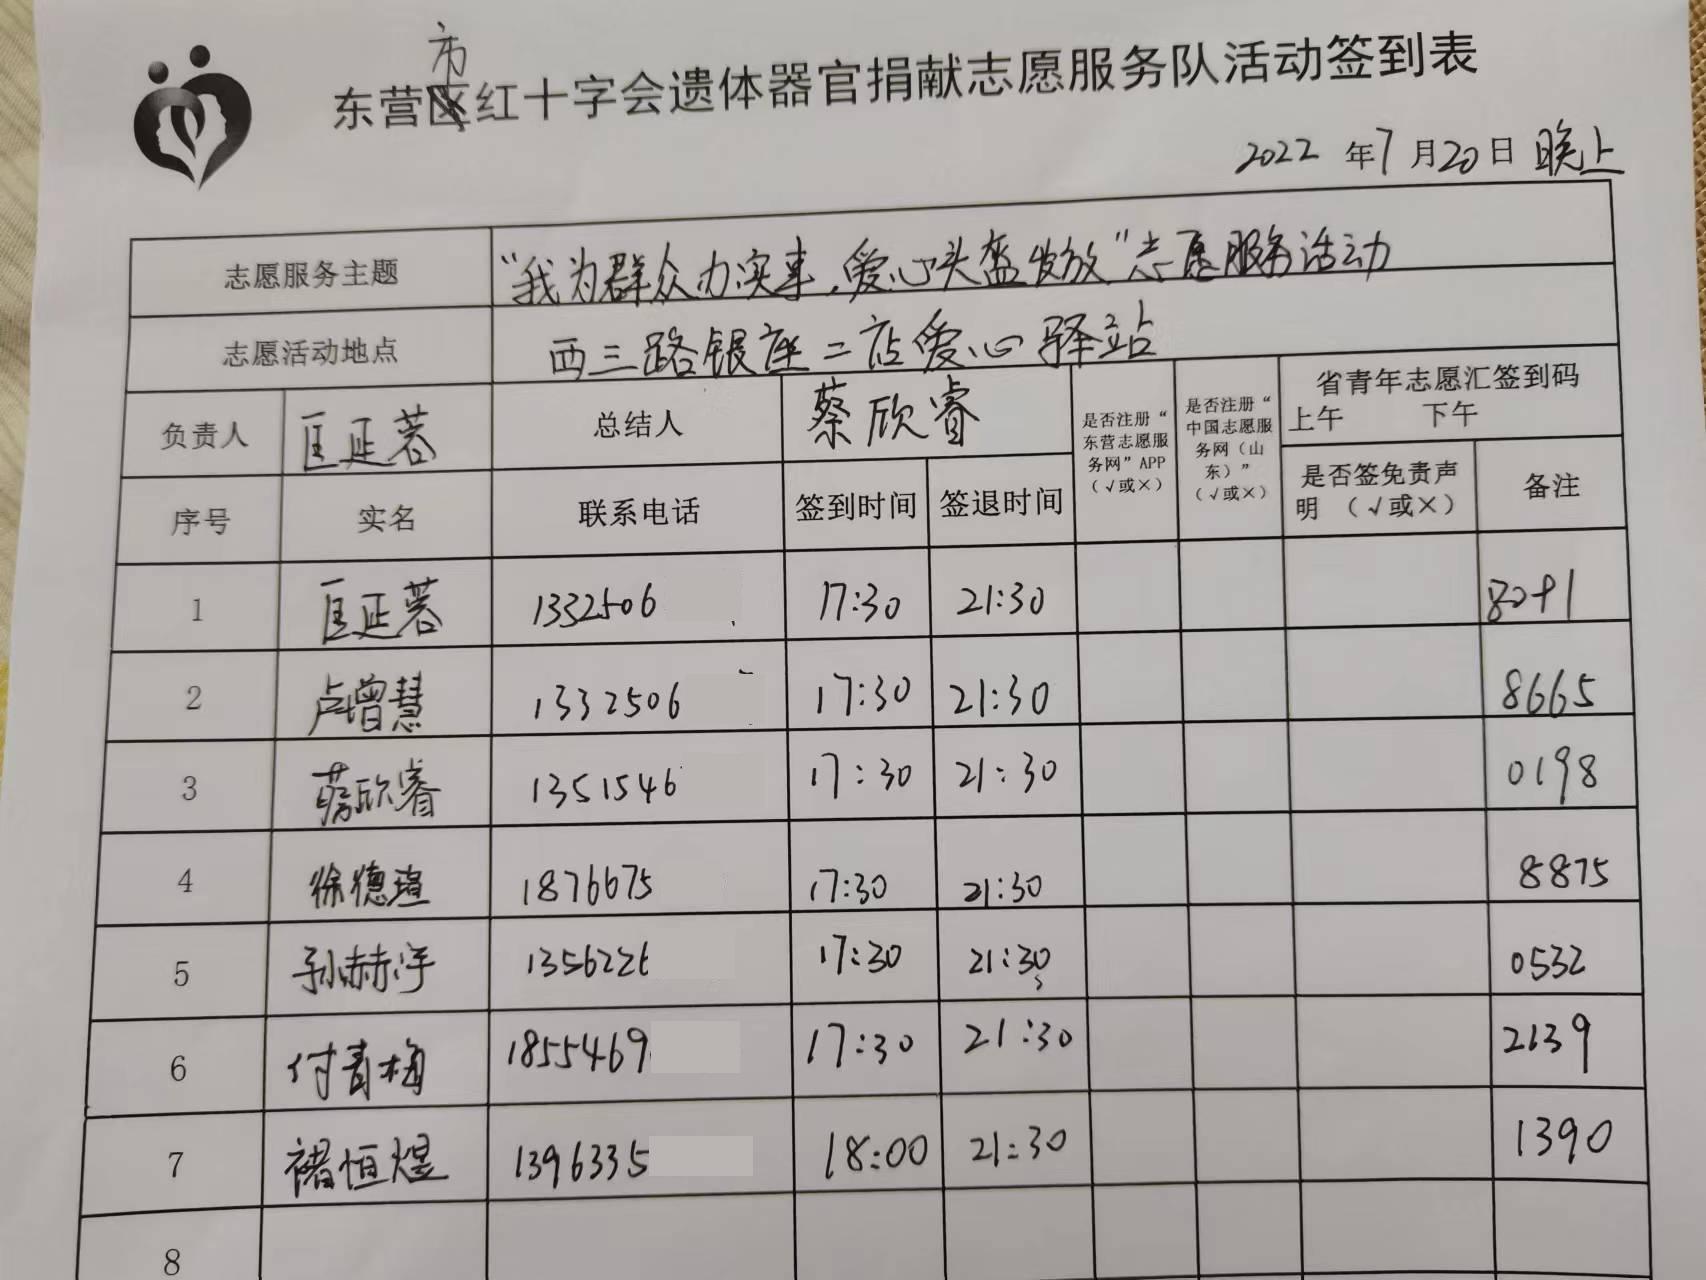 市
东营区红十字会遗体器官捐献志愿服务队活动签到表
2022 年 7 月 20 日 晚上
志愿服务主题 “我为群众办实事,爱心头盔发放”志愿服务活动
志愿活动地点 西三路银座二店爱心驿站
负责人 匡延蓉 总结人 蔡欣睿
是否注册“
东营志愿服
务网”APP
(√或×)
是否注册“
中国志愿服
务网(山
东)”
(√或×)
省青年志愿汇签到码
上午 下午
序号 实名 联系电话 签到时间 签退时间
是否签免责声
明 (√或×)
备注
1 匡延蓉 1332506 17:30 21:30
2 卢增慧 1332506 17:30 21:30 8665
3 蔡欣睿 1351546 17:30 21:30 0198
4 徐德 1876675 17:30 21:30 8875
5 孙赫泽 1356226 17:30 21:30 0532
6 付青梅 1855469 17:30 21:30 2139
7 褚恒煜 1396335 18:00 21:30 1390
8